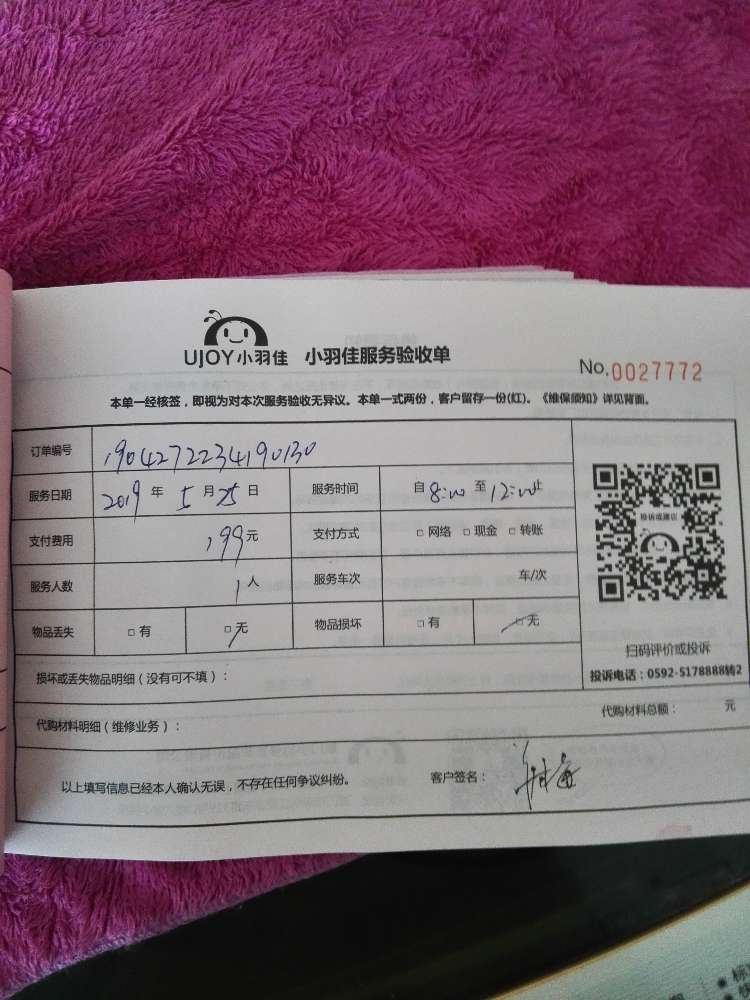 UJOY小羽佳 小羽佳服务验收单 No.0027772
本单一经核签，即视为对本次服务验收无异议。本单一式两份，客户留存一份(红)。《维保须知》详见背面。
订单编号 1904272234190130
服务日期 2019 年 5 月 25 日 服务时间 自 8:00 至 12:00 止
投诉或建议
支付费用 199 元 支付方式 □ 网络 □ 现金 □ 转账
服务人数 1 人 服务车次 车/次
物品丢失 □ 有 □ 无 物品损坏 □ 有 □ 无
扫码评价或投诉
投诉电话：0592-5178888转2
损坏或丢失物品明细（没有可不填）：
代购材料明细（维修业务）： 代购材料总额： 元
以上填写信息已经本人确认无误，不存在任何争议纠纷。 客户签名：